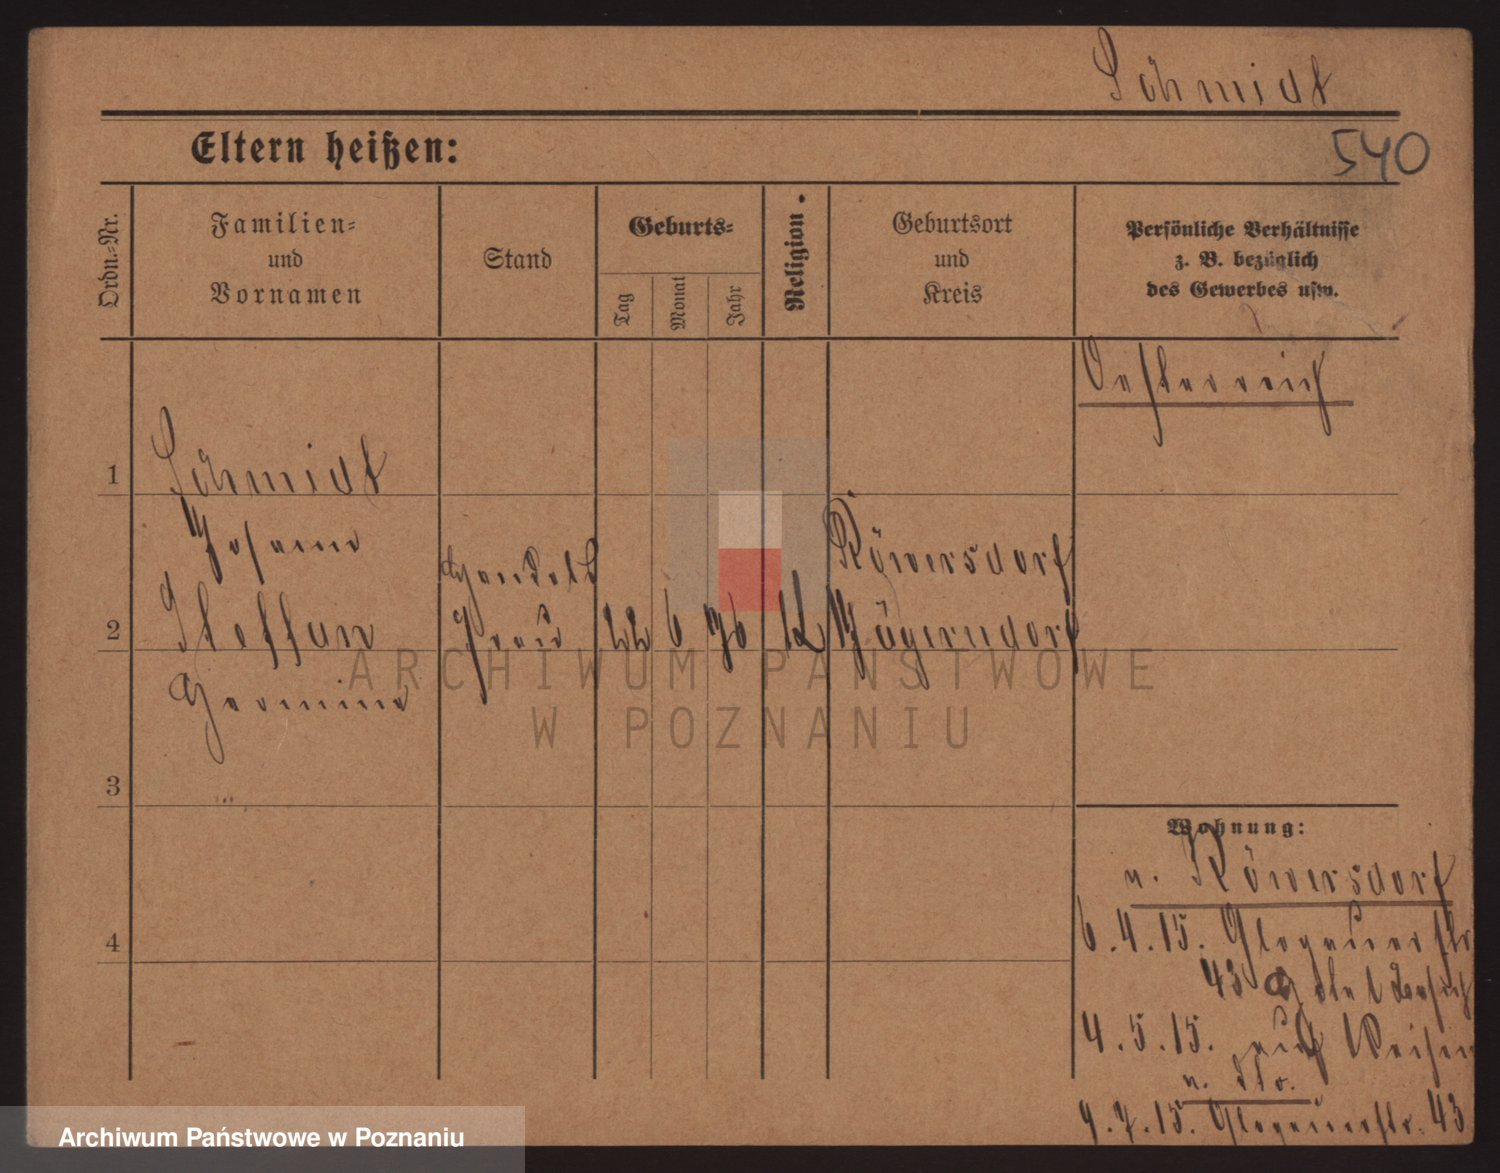 Schmidt
540
Eltern heißen:
Ordn.-Nr.
Familien-
und
Vornamen
Stand
Geburts-
Tag
Monat
Jahr
Religion.
Geburtsort
und
Kreis
Persönliche Verhältnisse
z. B. bezüglich
des Gewerbes usw.
Oesterreich
1
Schmidt
Johann
2
Steffan
Hermine
Handels
Frau
22
6
76
K
Röwersdorf
Jägerndorf
3
4
Wohnung:
n. Röwersdorf
6.4.15. Glogauerstr
43
4.5.15. auf Reisen
n. dto.
9.7.15. Glogauerstr. 43
ARCHIWUM PAŃSTWOWE
W POZNANIU
Archiwum Państwowe w Poznaniu